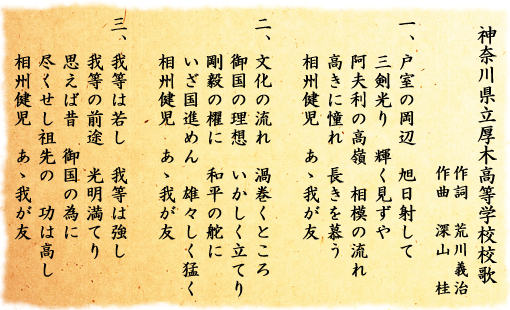 神奈川県立厚木高等学校校歌
作詞 荒川義治
作曲 深山 桂
一、戸室の岡辺 旭日射して
三剣光り 輝く見ずや
阿夫利の高嶺 相模の流れ
高きに憧れ 長きを慕う
相州健児 あゝ我が友
二、文化の流れ 渦巻くところ
御国の理想 いかしく立てり
剛毅の櫂に 和平の舵に
いざ国進めん 雄々しく猛く
相州健児 あゝ我が友
三、我等は若し 我等は強し
我等の前途 光明満てり
思えば昔 御国の為に
尽くせし祖先の 功は高し
相州健児 あゝ我が友